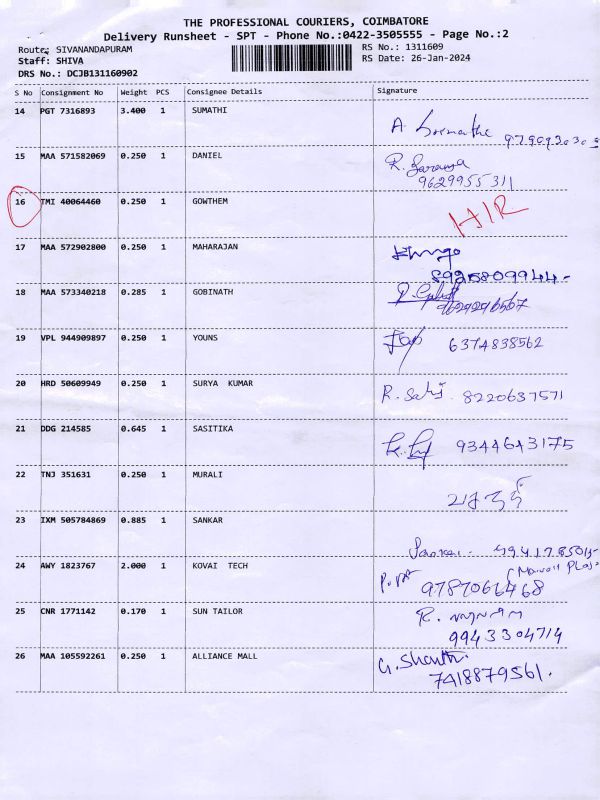 THE PROFESSIONAL COURIERS, COIMBATORE
Delivery Runsheet - SPT - Phone No.:0422-3505555 - Page No.:2
Route: SIVANANDAPURAM
RS No.: 1311609
Staff: SHIVA
RS Date: 26-Jan-2024
DRS No.: DCJB131160902
S No Consignment No Weight PCS Consignee Details Signature
14 PGT 7316893 3.400 1 SUMATHI A
15 MAA 571582069 0.250 1 DANIEL R. Saranya
9629955311
16 TMI 40064460 0.250 1 GOWTHEM HIR
17 MAA 572902800 0.250 1 MAHARAJAN
8925809944-
18 MAA 573340218 0.285 1 GOBINATH
19 VPL 944909897 0.250 1 YOUNS 6374838562
20 HRD 50609949 0.250 1 SURYA KUMAR R. Satis 8220637571
21 DDG 214585 0.645 1 SASITIKA 9344643175
22 TNJ 351631 0.250 1 MURALI
23 IXM 505784869 0.885 1 SANKAR Sankar
24 AWY 1823767 2.000 1 KOVAI TECH
9787066468
25 CNR 1771142 0.170 1 SUN TAILOR R.
9943304714
26 MAA 105592261 0.250 1 ALLIANCE MALL G. Shanthi
7418879561.